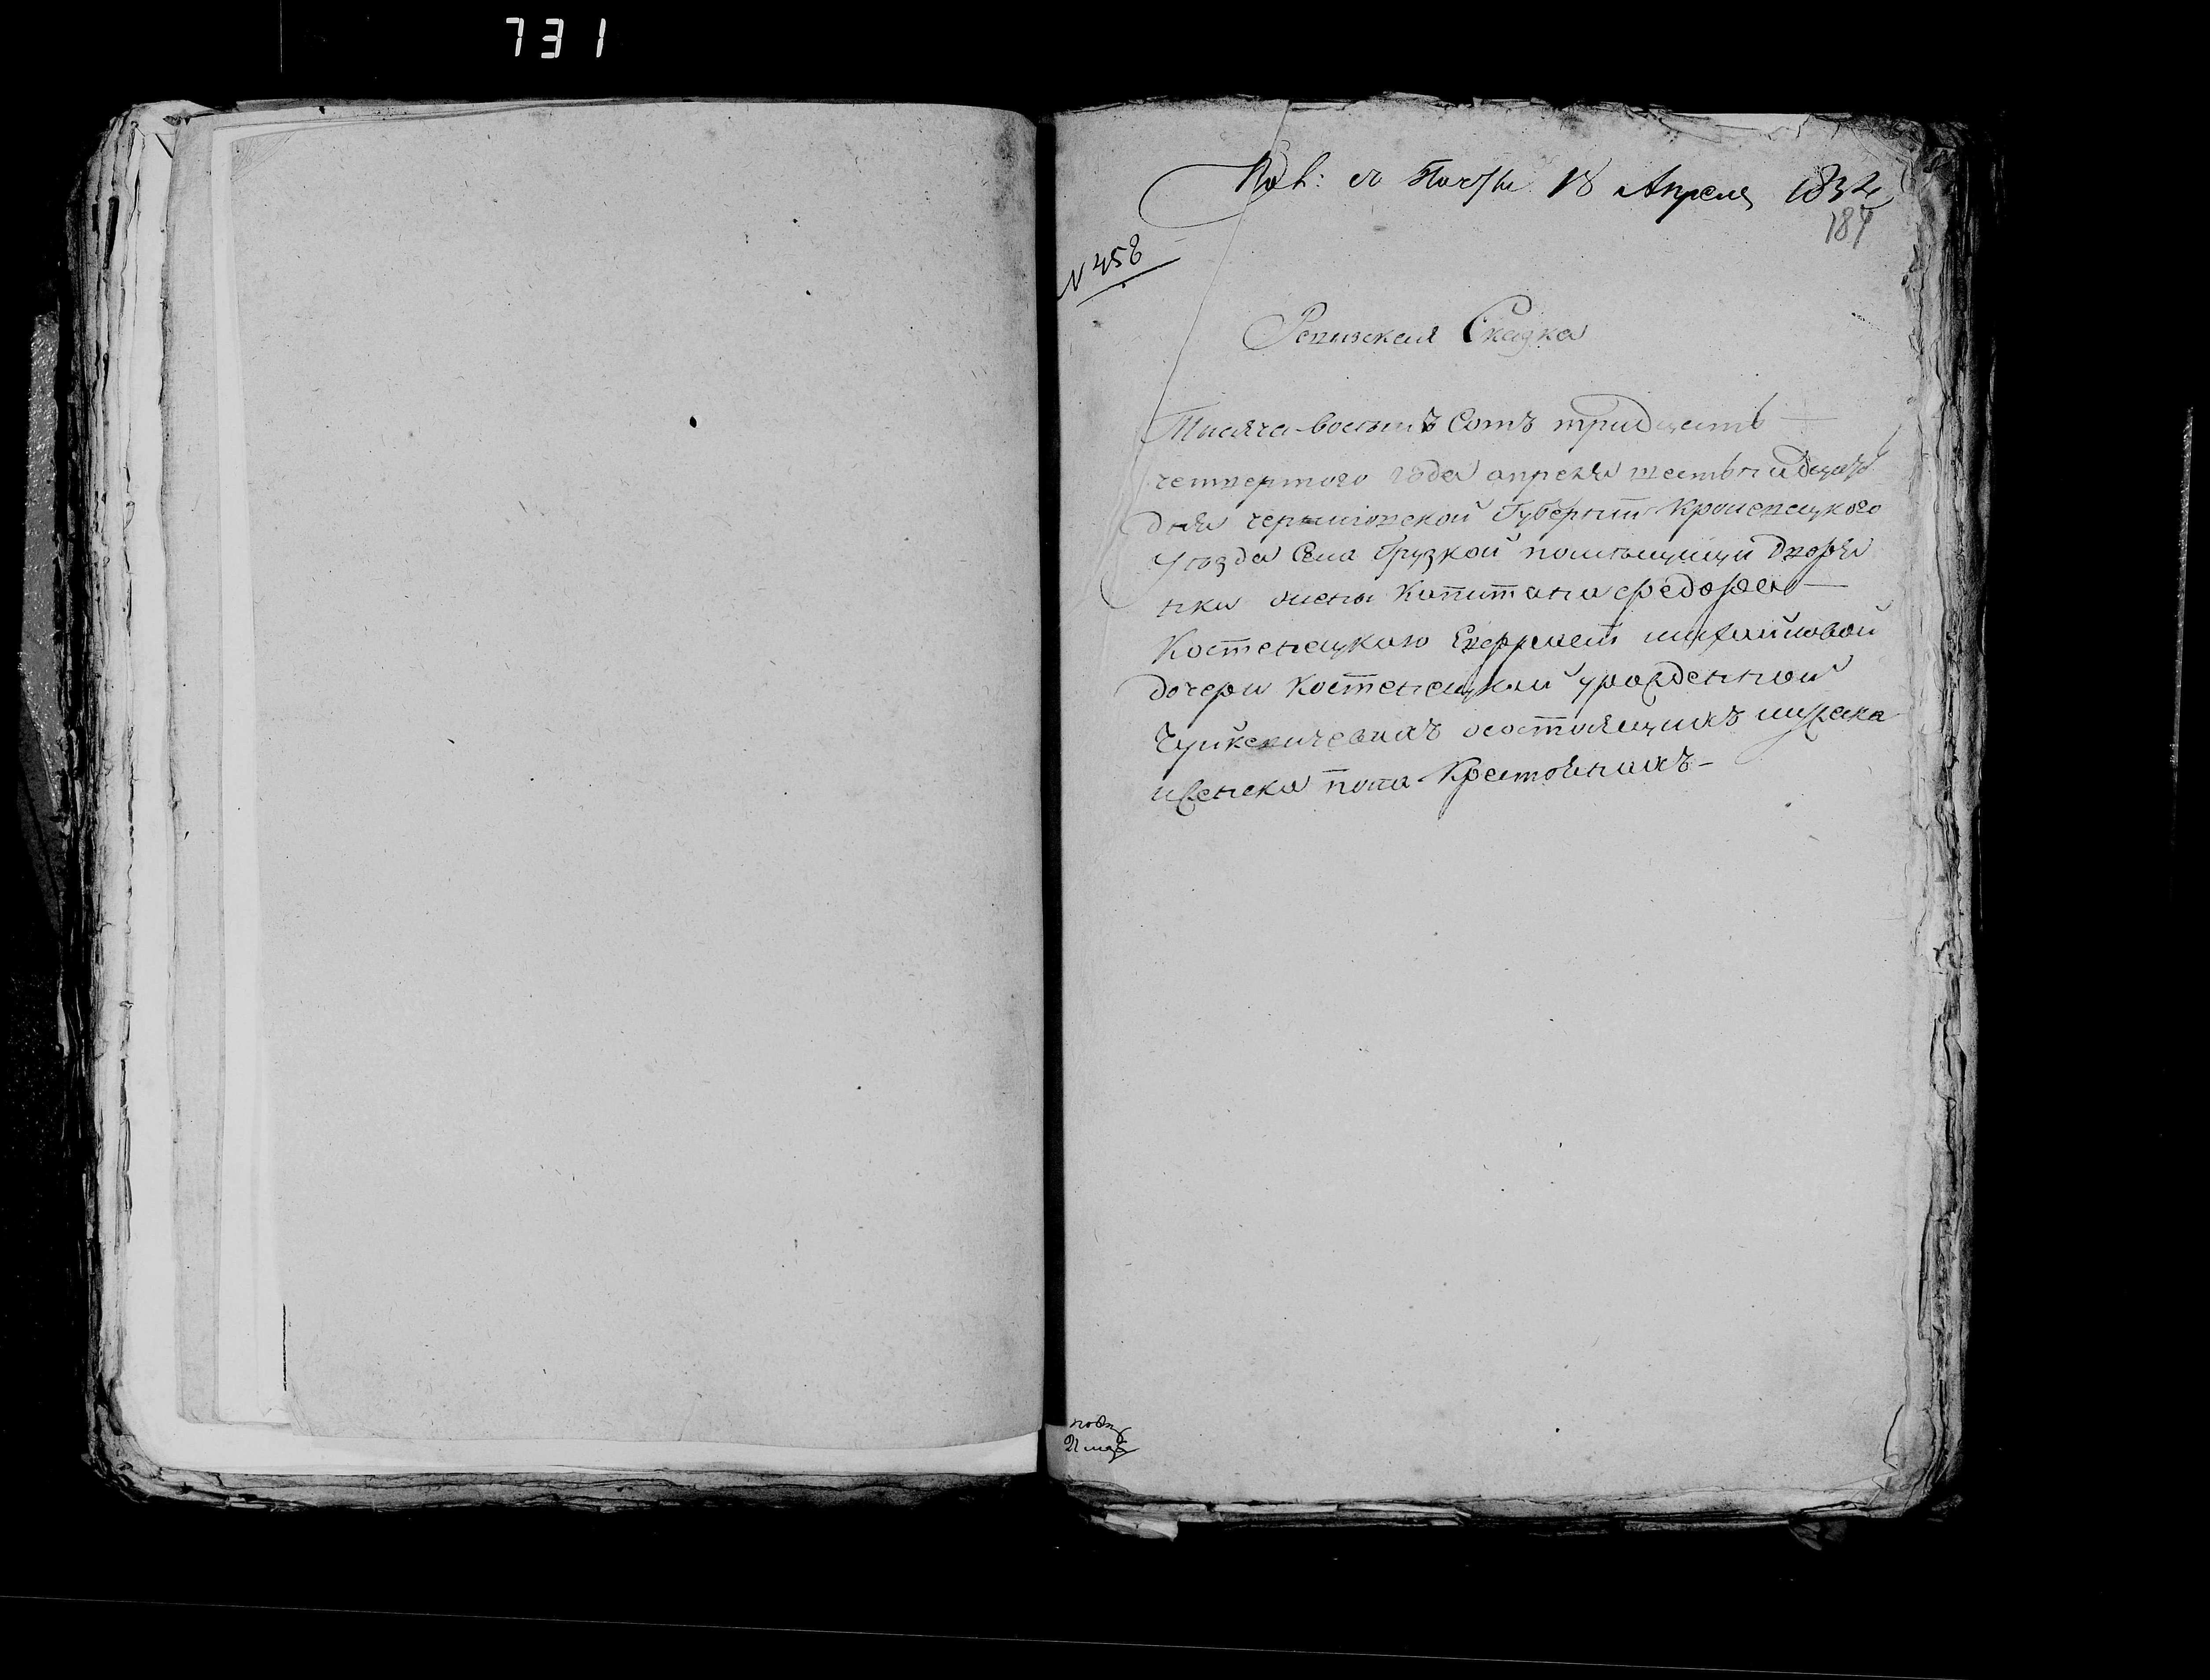 731
Пол: съ Почты 18 Апреля 1834
184
N 458
Ревизская Сказка
Тысяча восемъ Сотъ тридцать
четвертого года апреля шестьнадцат
дня черниговской Губернии Кролевецкого
Уезда Села Грузкой помѣщици Дворя
нки жены Капитана федора
Костенецкого михайловой
дочери Костенецкой урожденной
Чуйкевичевыхъ состоящихъ мужска
и женска пола Крестьянахъ
21 мая